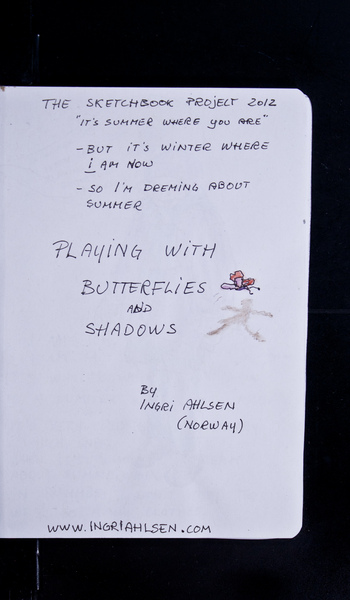 THE SKETCHBOOK PROJECT 2012
"IT'S SUMMER WHERE YOU ARE"
- BUT IT'S WINTER WHERE
I AM NOW
- SO I'M DREMING ABOUT
SUMMER
PLAYING WITH
BUTTERFLIES
AND
SHADOWS
BY
INGRI AHLSEN
(NORWAY)
WWW.INGRIAHLSEN.COM